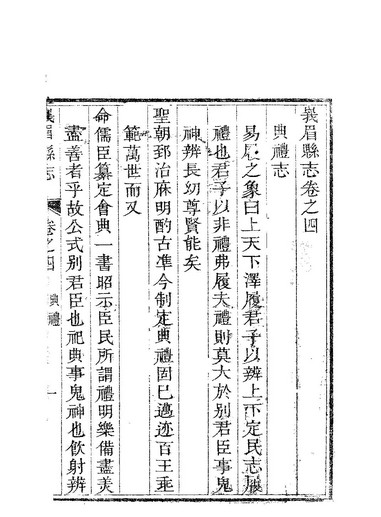 峩眉縣志卷之四
典禮志
易履之象曰上天下澤履君子以辨上下定民志履
禮也君子以非禮弗履夫禮則莫大於别君臣事鬼
神辨長幼尊賢能矣
聖朝郅治庥明酌古準今制定典禮固已邁迹百王垂
範萬世而又
命儒臣纂定會典一書昭示臣民所謂禮明樂備盡美
盡善者乎故公式别君臣也祀典事鬼神也飲射辨
峩眉縣志
卷之四
典禮
一